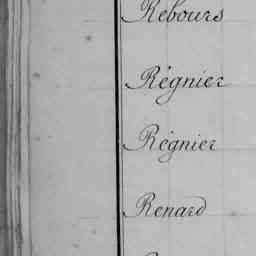 Rebours
Régnier
Régnier
Renard